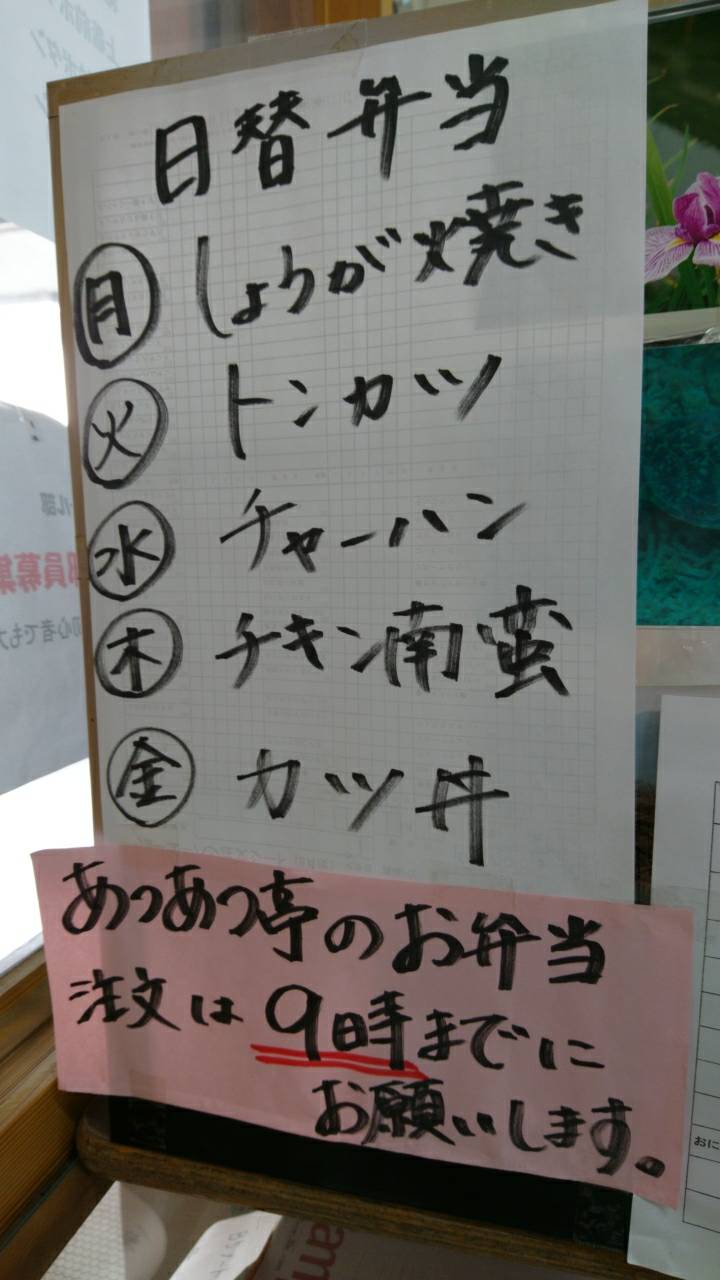 日替弁当
月 しょうが焼き
火 トンカツ
水 チャーハン
木 チキン南蛮
金 カツ丼
あつあつ亭のお弁当
注文は9時までに
お願いします。
部員募集
初心者でも大
おに